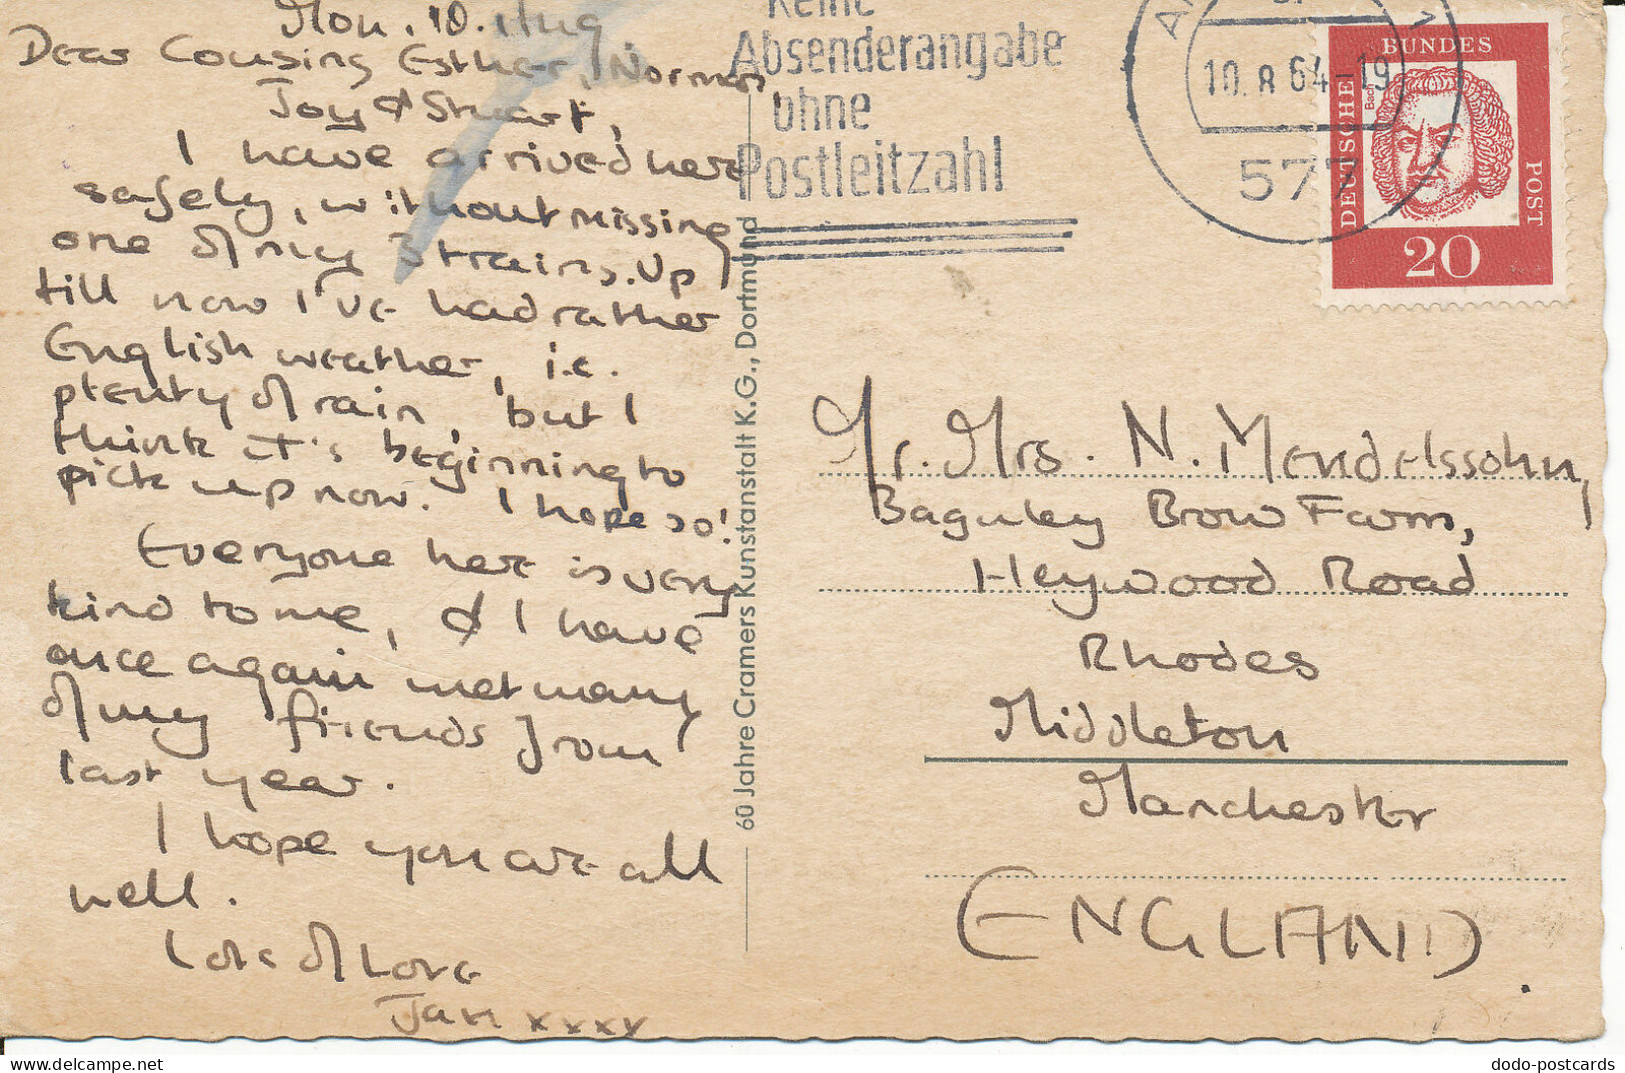 Mon. 10. Aug
Dear Cousins Esther, Norman,
Joy & Stuart,
I have arrived here
safely, without missing
one of my 3 trains. Up
till now I've had rather
English weather, i.e.
plenty of rain, but I
think it's beginning to
pick up now. I hope so!
Everyone here is very
kind to me, & I have
once again met many
of my friends from
last year.
I hope you are all
well.
Lots of Love
Jan xxxx
60 Jahre Cramers Kunstanstalt K.G., Dortmund
Keine
Absenderangabe
ohne
Postleitzahl
10.8.64-19
577
DEUTSCHE
BUNDES
POST
Bach
20
Mr. Mrs. N. Mendelssohn,
Baguley Brow Farm,
Heywood Road
Rhodes
Middleton
Manchester
(ENGLAND)
delcampe.net
dodo-postcards